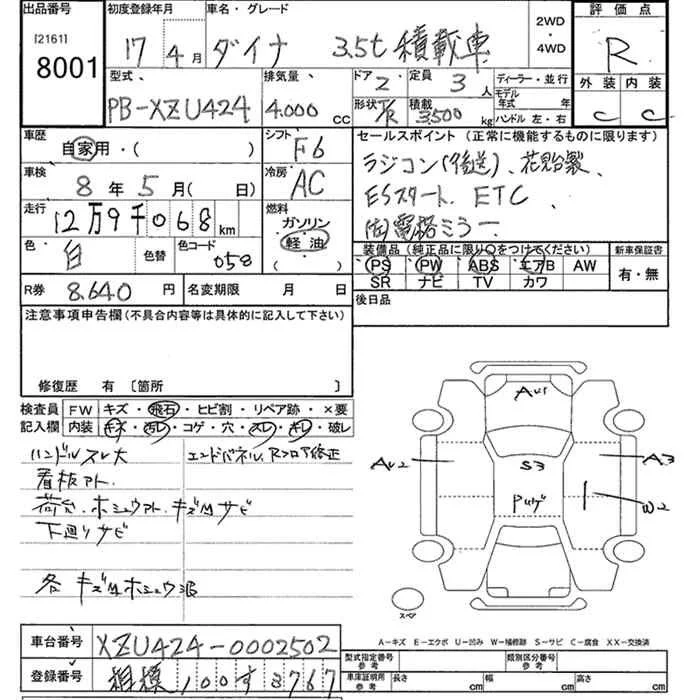 出品番号
[2161]
8001
初度登録年月
17年4月
車名・グレード
ダイナ 3.5t 積載車
2WD
・
4WD
評価点
R
外装 内装
C C
型式
PB-XZU424
排気量
4.000 CC
ドア 2
定員 3 人
形状 T/R
積載 3500 kg
ディーラー・並行
モデル年式 年式
ハンドル 左・右
車歴
自家用・( )
シフト
F6
車検
8年5月( 日)
冷房
AC
走行
12万9千068km
燃料
ガソリン
軽油
( )
色
白
色替
色コード
058
R券 8,640円
名変期限 月 日
セールスポイント (正常に機能するものに限ります)
ラジコン(後送)、花見台製、
ESスタート、ETC、
(左)電格ミラー
装備品(純正品に限り○をつけてください)
PS PW ABS エアB AW
SR ナビ TV カワ
新車保証書
有・無
後日品
注意事項申告欄(不具合内容等は具体的に記入して下さい)
修復歴 有 〔箇所 〕
検査員記入欄
FW キズ・飛石・ヒビ割・リペア跡・×要
内装 キズ・汚レ・コゲ・穴・スレ・キレ・破レ
ハンドルスレ大
看板アト.
荷台.ホシュウアト.キズ凹サビ
下廻りサビ
各キズ凹ホシュウ跡
エンドパネル、Rフロア修正
AU1
AU2
S3
A3
W2
スペア
A-キズ E-エクボ U-凹み W-補修跡 S-サビ C-腐食 XX-交換済
車台番号 XZU424-0002502
登録番号 相模100す3767
型式指定番号 参考
類別区分番号 参考
車庫証明用 参考
長さ cm 幅 cm 高さ cm